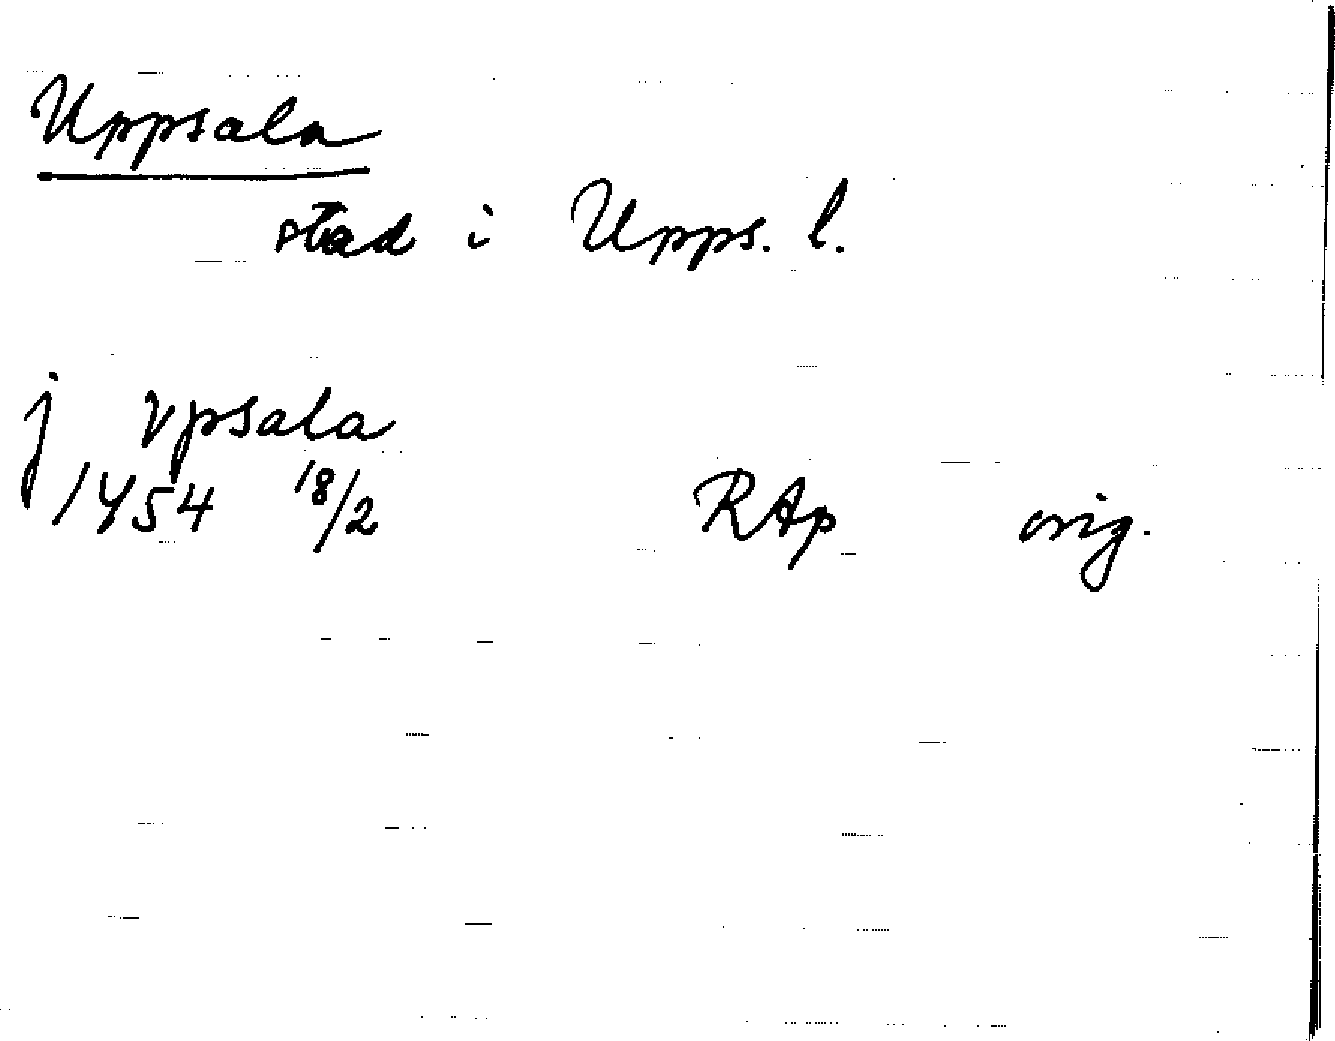 Uppsala
stad i Upps. l.
j vpsala
1454 18/2 RAp orig.